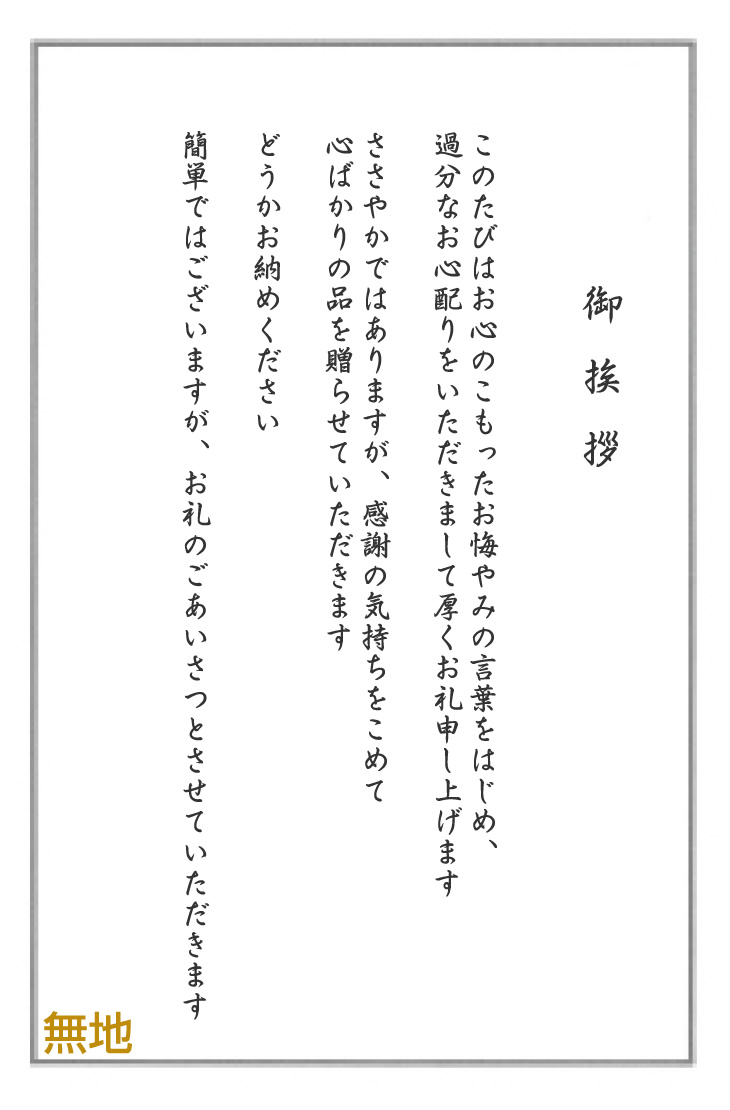 御挨拶
このたびはお心のこもったお悔やみの言葉をはじめ、
過分なお心配りをいただきまして厚くお礼申し上げます
ささやかではありますが、感謝の気持ちをこめて
心ばかりの品を贈らせていただきます
どうかお納めください
簡単ではございますが、お礼のごあいさつとさせていただきます
無地